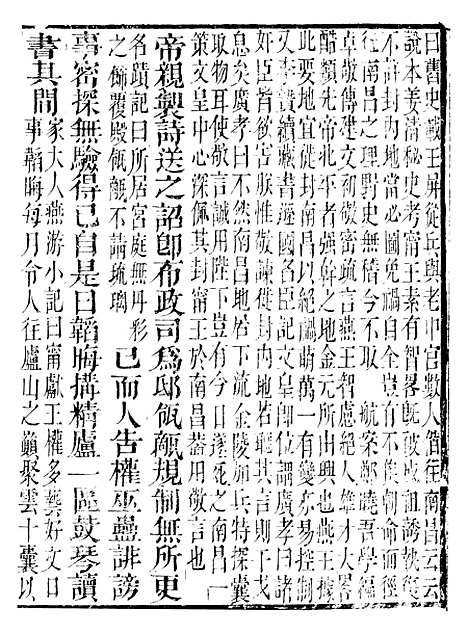 曰舊史載王屏從兵與老中官數人偕往南昌云云
說本姜清秘史考甯王素有智畧既被成祖誘執從
不許封內地當必圖免禍自全豈有不俟朝命而徑
往南昌之理野史無稽今不取 航案鄭曉吾學編
卓敬傳建文初敬密疏言燕王智慮絕人雄才大畧
酷類先帝北平者強幹之地金元所由興也燕王據
此要地宜徙封南昌以絕禍萌萬一有變亦易控制
又李贄續藏書遜國名臣文皇卽位其言則予戈
奸臣皆欲害朕惟敬諫徙封內地
息矣廣孝曰不然南昌地居下流金陵加兵特探囊
取物耳使敬言誠用陛下豈有今日遂死之南昌一
策文皇中心深佩其封甯王於南昌蓋用敬言也
帝親製詩送之詔卽布政司爲邸瓴甋規制無所更
名蹟記曰所居宮庭無丹彩
之飾覆殿瓴甋不請琉璃
已而人告權巫蠱誹謗
事密探無驗得已自是日韜晦搆精廬一區鼓琴讀
書其間
家大人燕游小記曰甯獻王權多藝好文日
事韜晦每月令人往廬山之巔聚雲十囊以